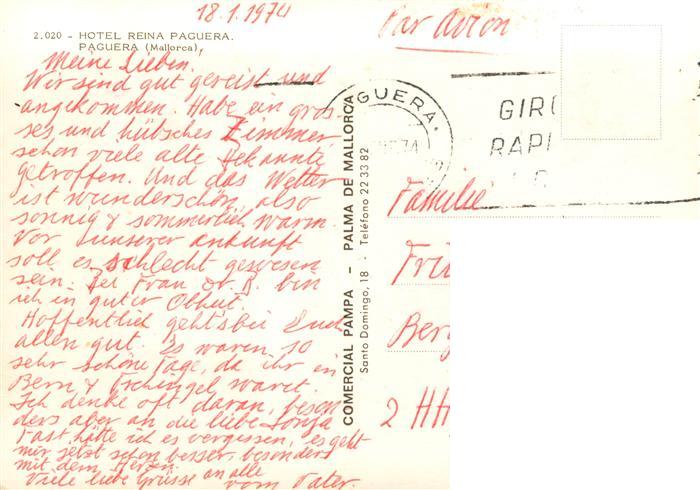 18.1.1974
Par avion
2.020 - HOTEL REINA PAGUERA.
PAGUERA (Mallorca)
Meine Lieben,
Wir sind gut gereist und
angekommen. Habe ein gros-
ses und hübsches Zimmer
schon viele alte Bekannte
getroffen. Und das Wetter
ist wunderschön, also
sonnig & sommerlich warm.
Vor unserer Ankunft
soll es schlecht gewesen
sein. Bei Frau Dr. B. bin
ich in guter Obhut.
Hoffentlich geht's bei Euch
allen gut. Es waren 10
sehr schöne Tage, da ihr in
Bern & Tschingel waret.
Ich denke oft daran, beson
ders aber an die liebe Sonja
Fast hätte ich es vergessen, es geht
mir jetzt schon besser, besonders
mit dem Herzen.
Viele liebe Grüsse an alle
vom Vater.
COMERCIAL PAMPA - PALMA DE MALLORCA
Santo Domingo, 18 - Teléfono 22 33 82
GUERA.
74
GIRO
RAPI
Familie
Fri
Berg
2 HH